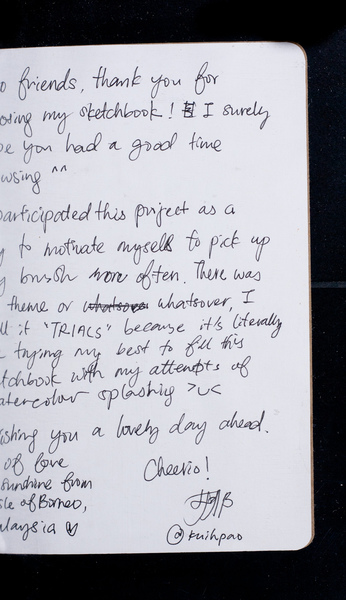 o friends, thank you for
osing my sketchbook! I surely
pe you had a good time
wsing ^^
participated this project as a
y to motivate myself to pick up
y brush more often. There was
theme or whatsover whatsover, I
ll it "TRIALS" because it's literally
trying my best to fill this
etchbook with my attempts of
atercolour splashing >u<
ishing you a lovely day ahead.
of love
sunshine from
sle of Borneo,
alaysia ♡
Cheerio!
@kuihpao